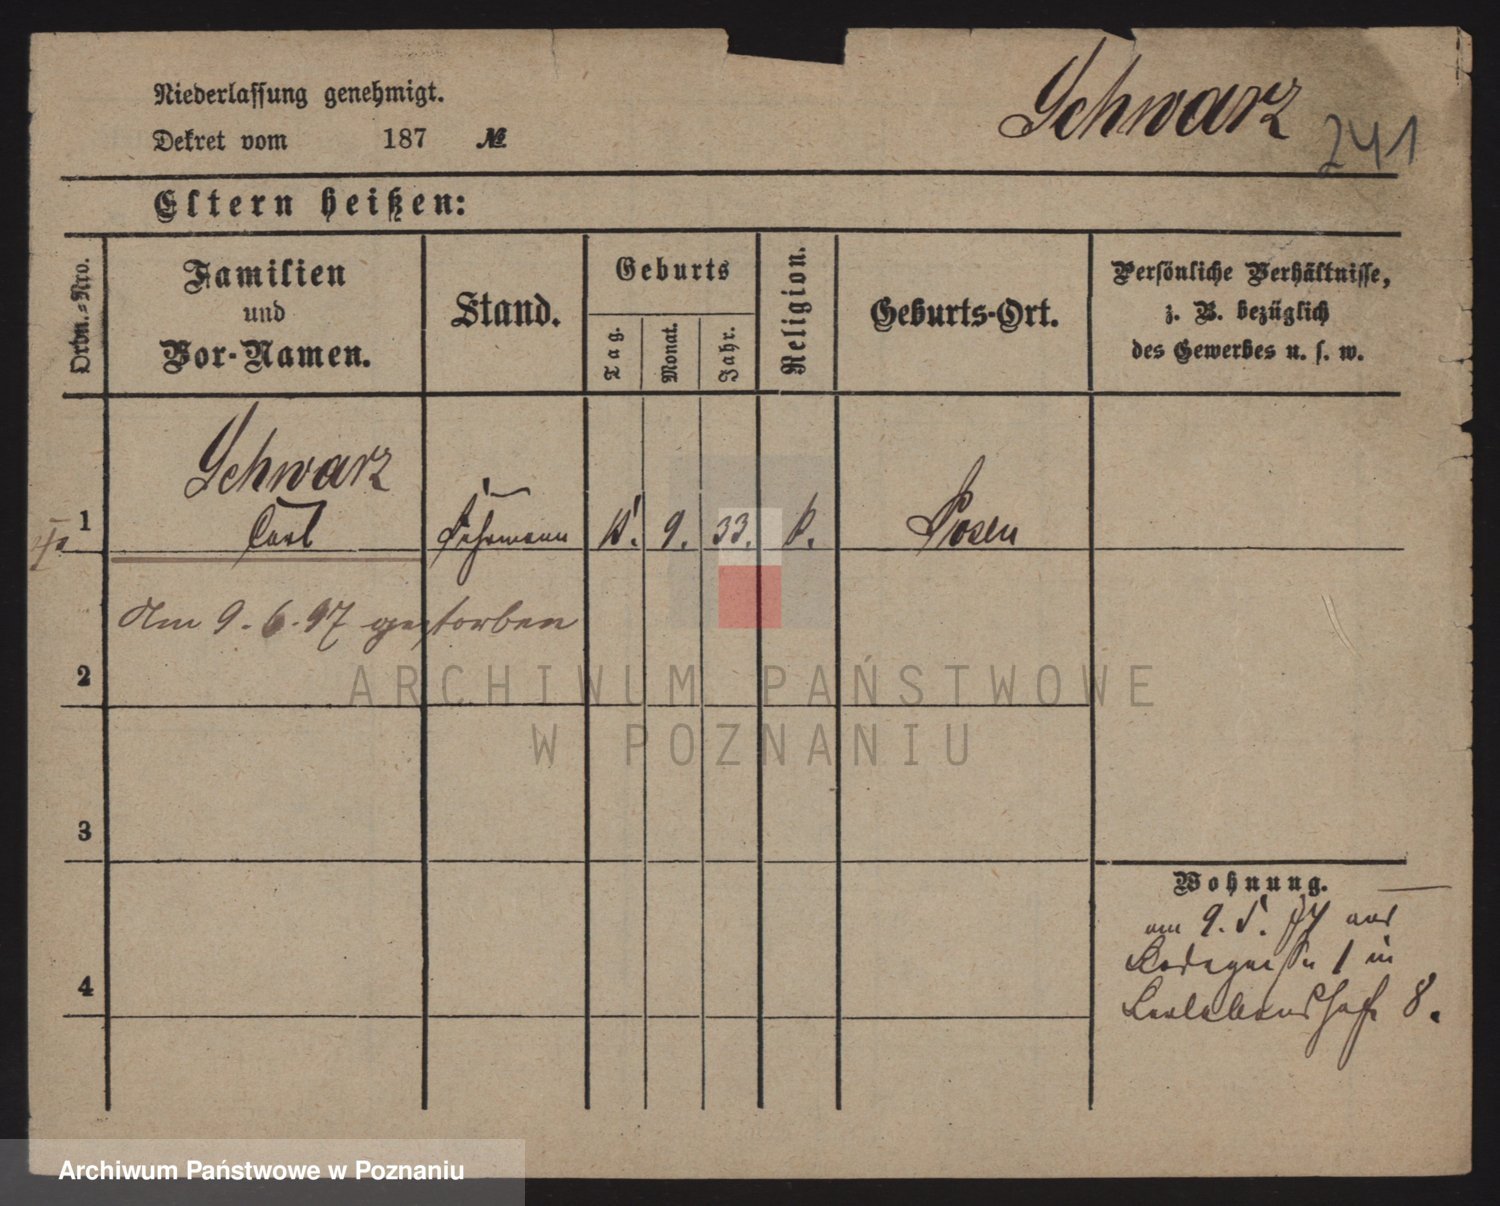 Niederlassung genehmigt.
Dekret vom 187 №
Schwarz
241
Eltern heißen:
Ordn.-Nro.
Familien
und
Vor-Namen.
Stand.
Geburts
Tag.
Monat.
Jahr.
Religion.
Geburts-Ort.
Persönliche Verhältnisse,
z. B. bezüglich
des Gewerbes u. s. w.
Schwarz
1 Carl 9. 33. Posen
Am 9. 6. 97 gestorben
2
3
4
Wohnung.
am 9. 5. aus
1 in
8.
ARCHIWUM PAŃSTWOWE
W POZNANIU
Archiwum Państwowe w Poznaniu